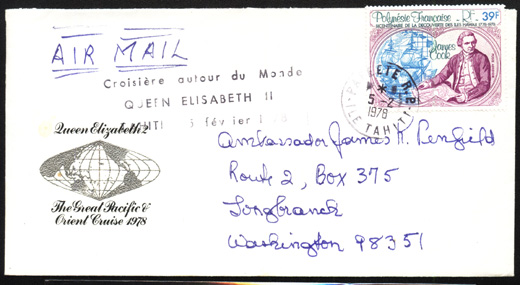 AIR MAIL
Polynésie Française RF 39F
BICENTENAIRE DE LA DECOUVERTE DES ILES HAWAII 1778-1978
James
Cook
Croisière autour du Monde
QUEEN ELISABETH II
5 février
PAPEETE R.P.
5-2
1978
ILE TAHITI
Queen Elizabeth 2
The Great Pacific &
Orient Cruise 1978
Ambassador James H. Penfield
Route 2, Box 375
Longbranch
Washington 98351